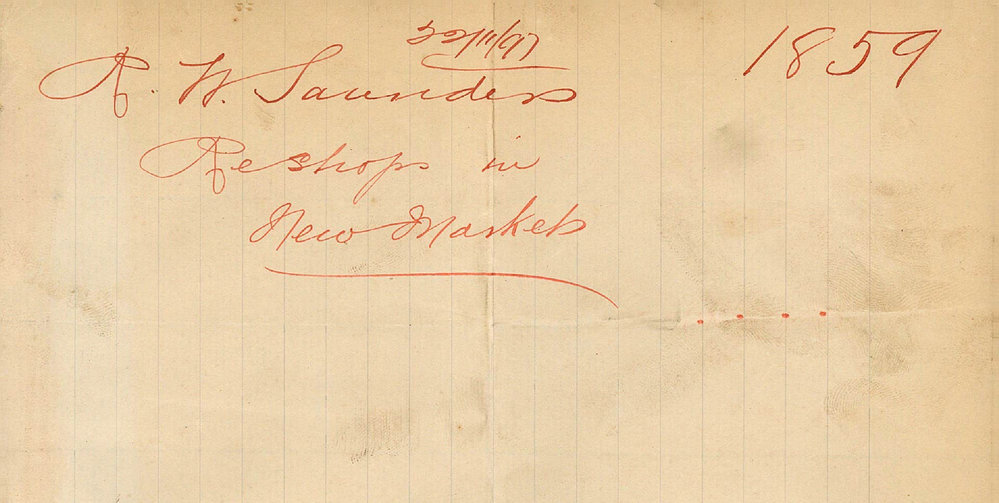 22/11/97
1859
R. W. Saunders
Re shops in
New Markets